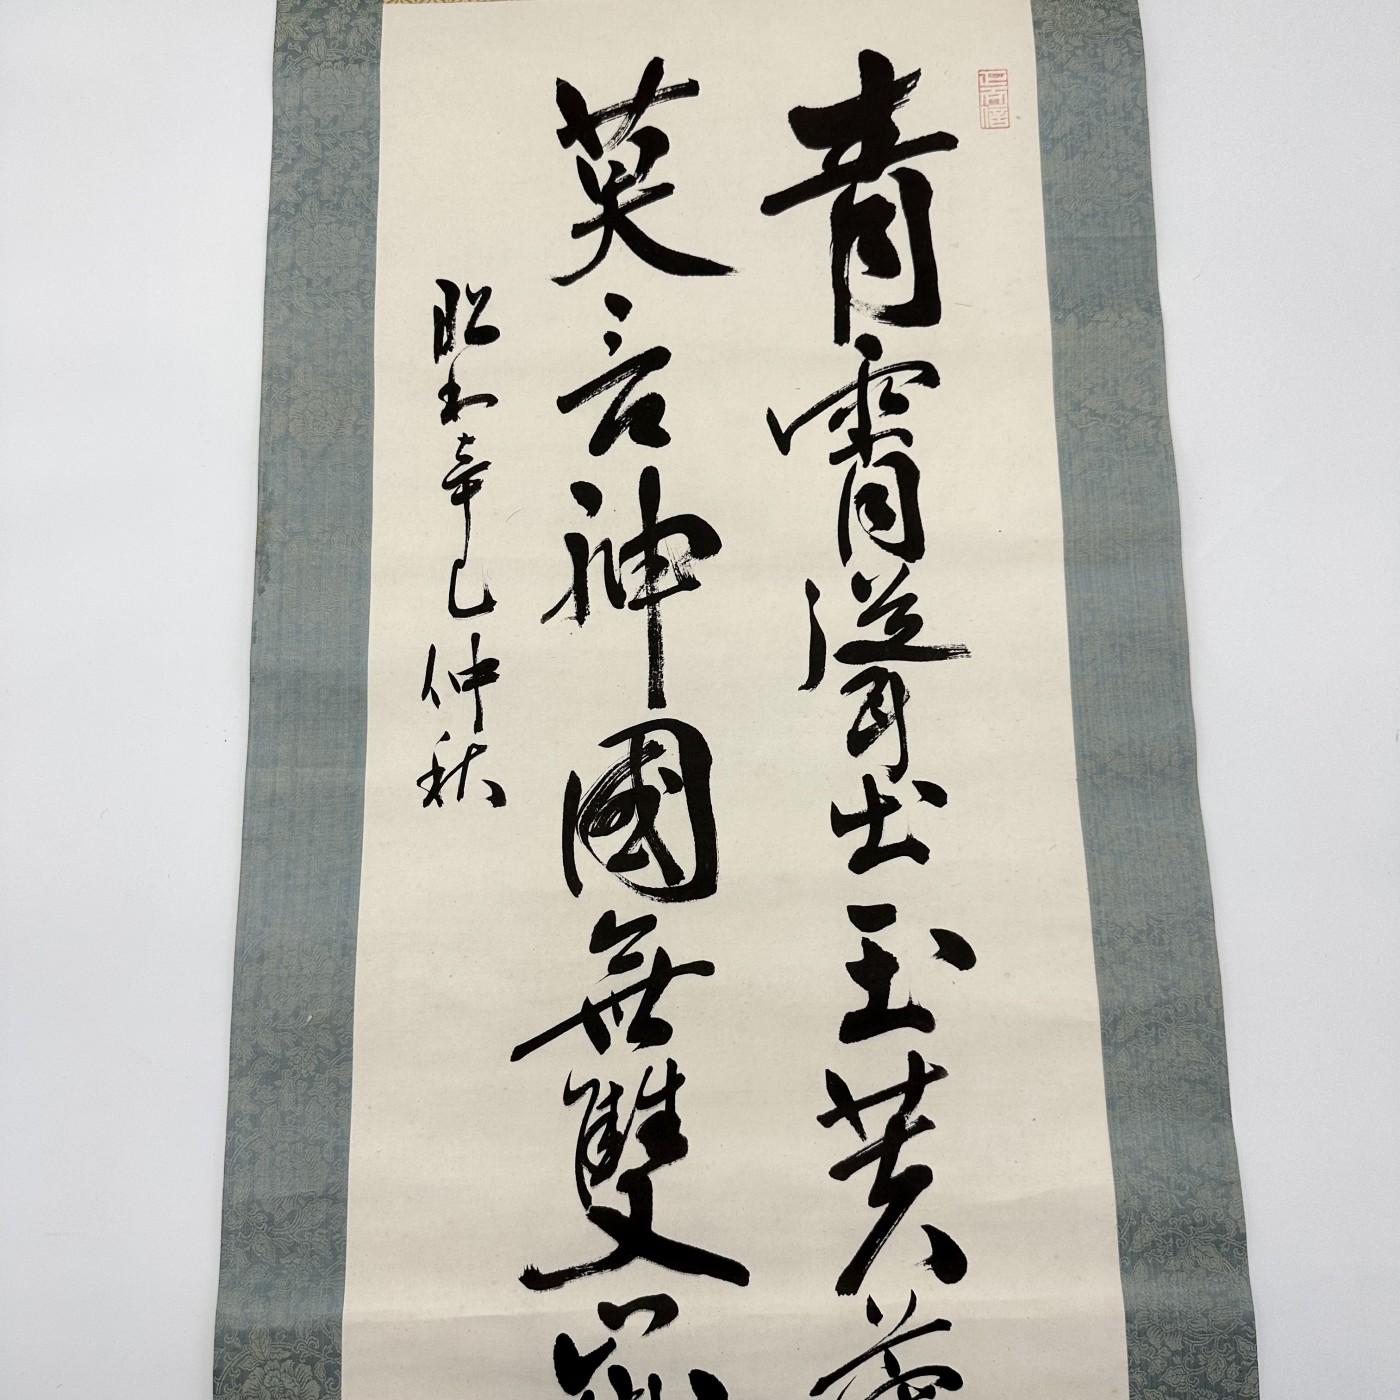 青霄聳出玉芙
莫言神國無雙
昭和辛巳仲秋